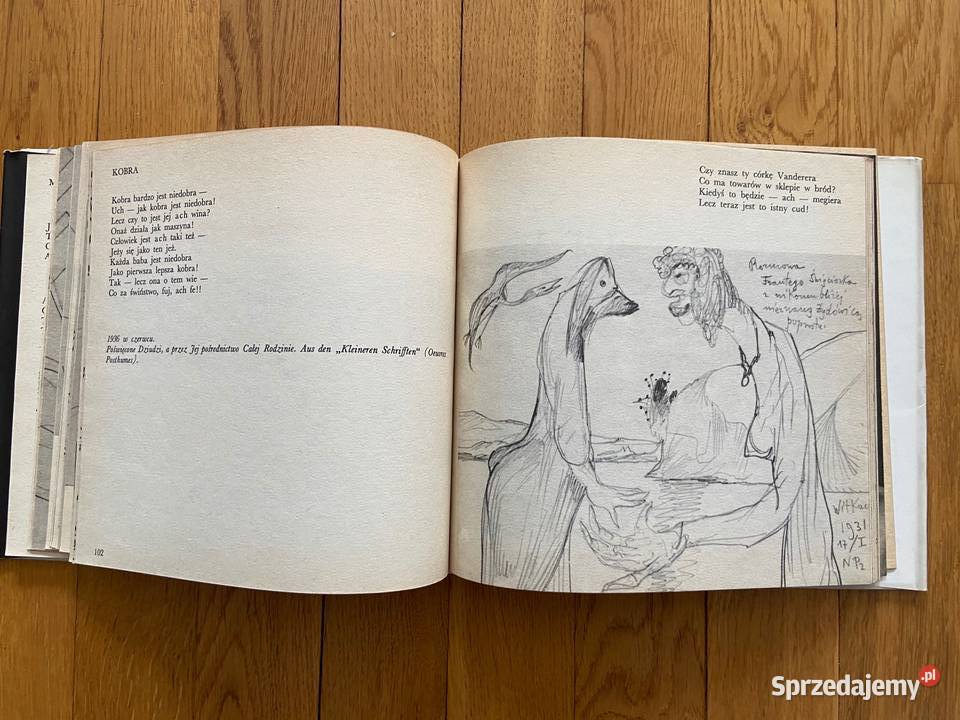 KOBRA
Kobra bardzo jest niedobra —
Uch — jak kobra jest niedobra!
Lecz czy to jest jej ach wina?
Onaż działa jak maszyna!
Człowiek jest ach taki też —
Jeży się jako ten jeż.
Każda baba jest niedobra
Jako pierwsza lepsza kobra!
Tak — lecz ona o tem wie —
Co za świństwo, fuj, ach fe!!
1936 w czerwcu.
Poświęcone Dziudzi, a przez Jej pośrednictwo Całej Rodzinie. Aus den „Kleineren Schrifften" (Oeuvres
Posthumes).
102
Czy znasz ty córkę Vanderera
Co ma towarów w sklepie w bród?
Kiedyś to będzie — ach — megiera
Lecz teraz jest to istny cud!
Rozmowa
z nikomu bliżej
nieznaną Żydówicą
Witkacy
1931
17/I
Sprzedajemy.pl